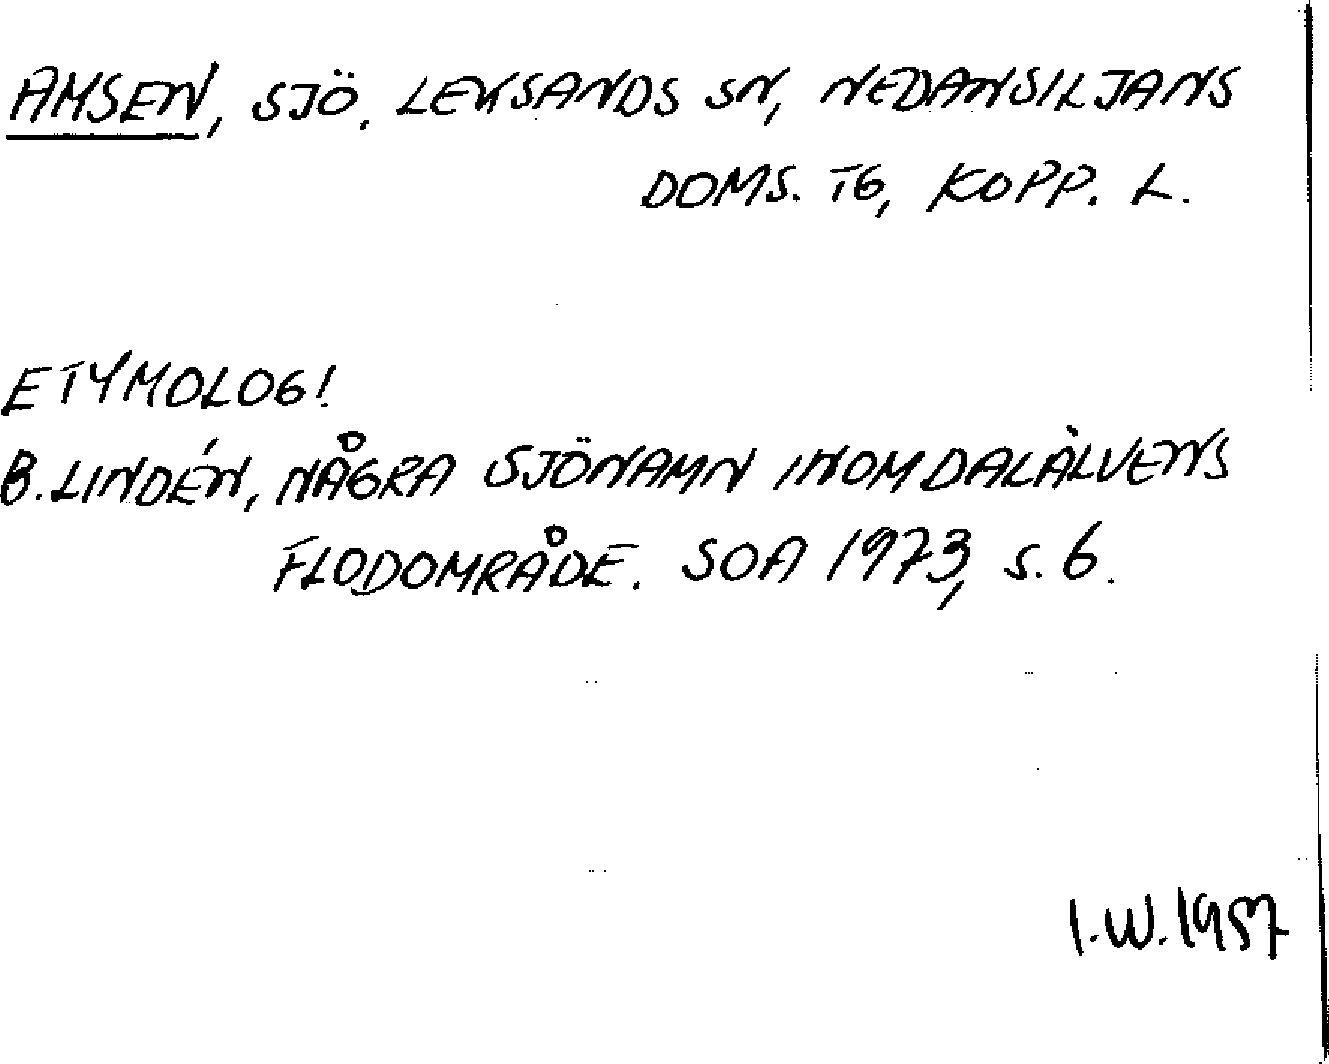 AMSEN, SJÖ. LEKSANDS SN, NEDANSILJANS
DOMS. TG, KOPP. L.
ETYMOLOG!
B. LINDÉN, NÅGRA SJÖNAMN INOM DALÄLVENS
FLODOMRÅDE. SOA 1973, S. 6.
I.W. 1987